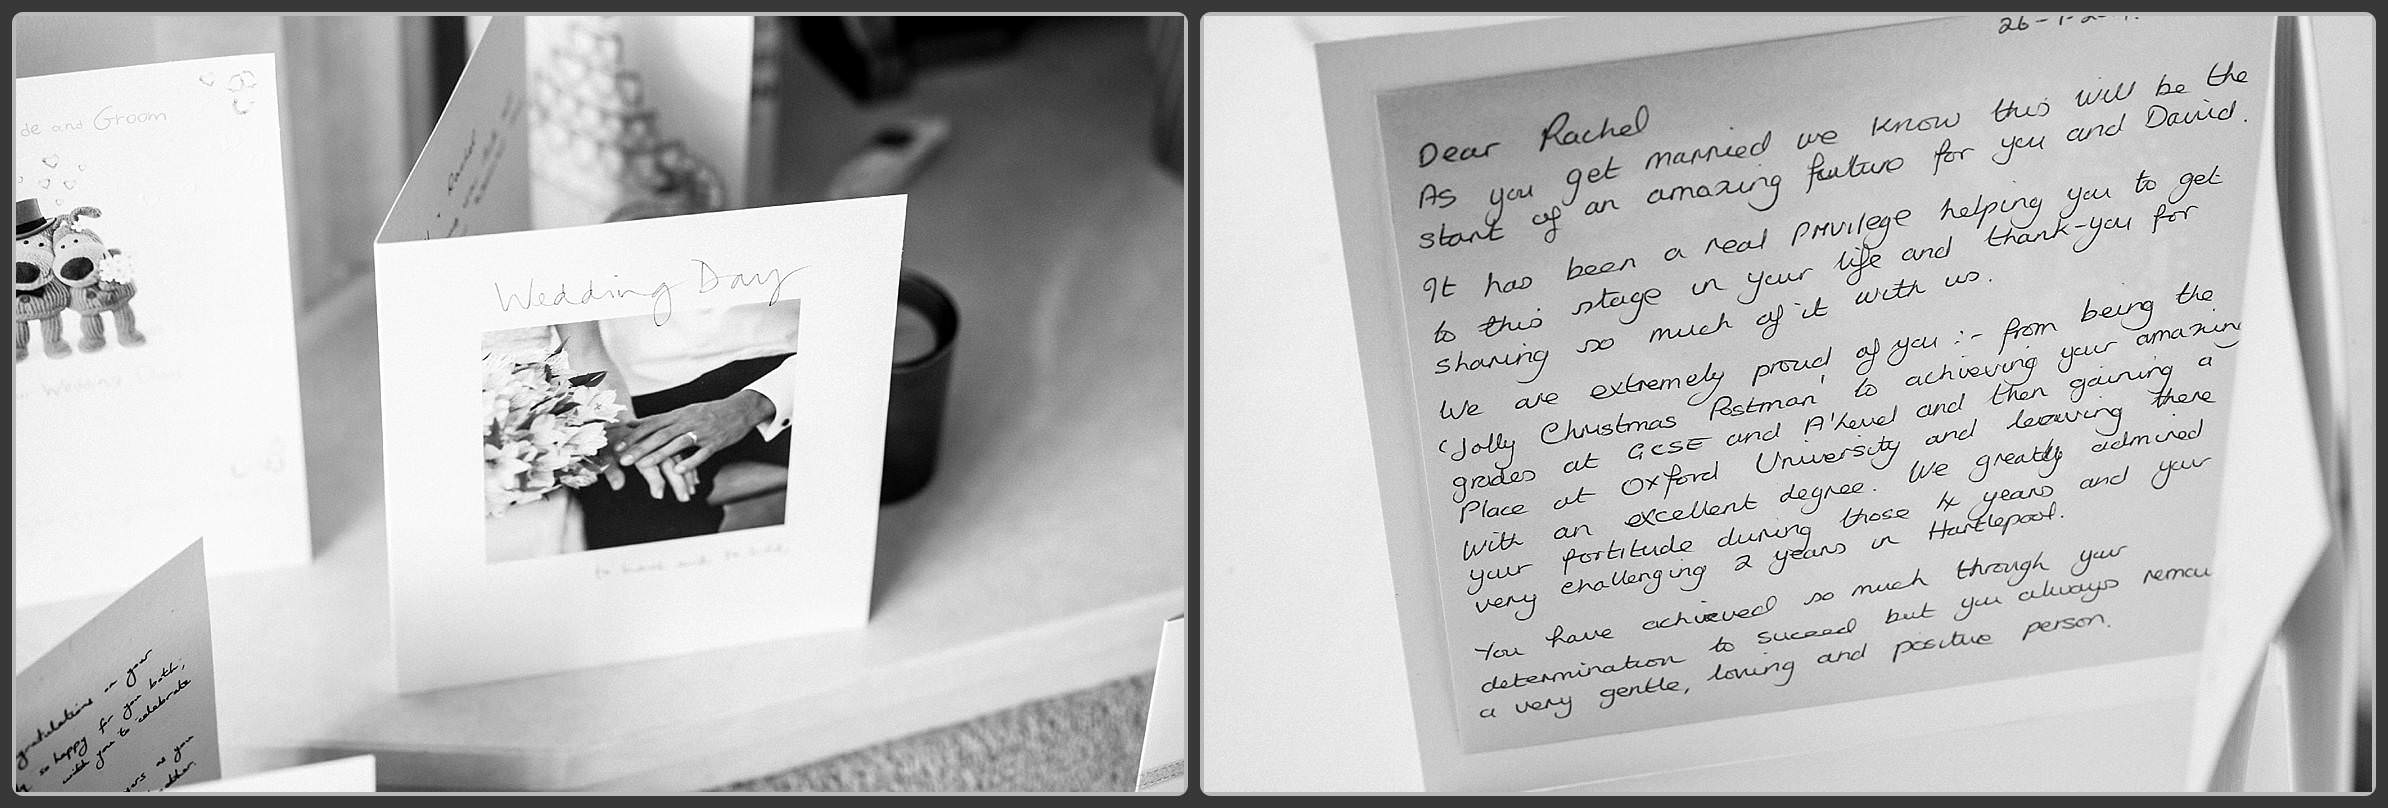 and Groom
Wedding Day
Wedding Day
to have and to hold
Rachel
on your
so happy for you both,
with you to celebrate
as you
Dear Rachel
As you get married we know this will be the
start of an amazing future for you and David.
It has been a real Privilege helping you to get
to this stage in your life and thank-you for
sharing so much of it with us.
We are extremely proud of you :- from being the
'Jolly Christmas Postman' to achieving your amazing
grades at GCSE and A'Level and then gaining a
Place at Oxford University and leaving there
with an excellent degree. We greatly admired
your fortitude during those 4 years and your
very challenging 2 years in Hartlepool.
You have achieved so much through your
determination to succeed but you always
a very gentle, loving and positive person.